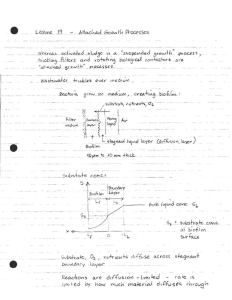 Lecture 19 - Attached Growth Processes
Whereas activated sludge is a "suspended growth" process,
trickling filters and rotating biological contactors are
"attached growth" processes.
Wastewater trickles over medium.
Bacteria grow on medium, creating biofilm:
substrate, nutrients, O2
Filter
medium
Air
stagnant liquid layer (diffusion layer)
Biofilm
Substrate conc:
S
Boundary
Layer
Biofilm
bulk liquid conc. Sb
Ss
Ss = substrate conc.
at biofilm
surface
x
0
Substrate, O2, nutrients diffuse across stagnant
boundary layer
Reactions are diffusion-limited - rate is
limited by how much material diffuses through